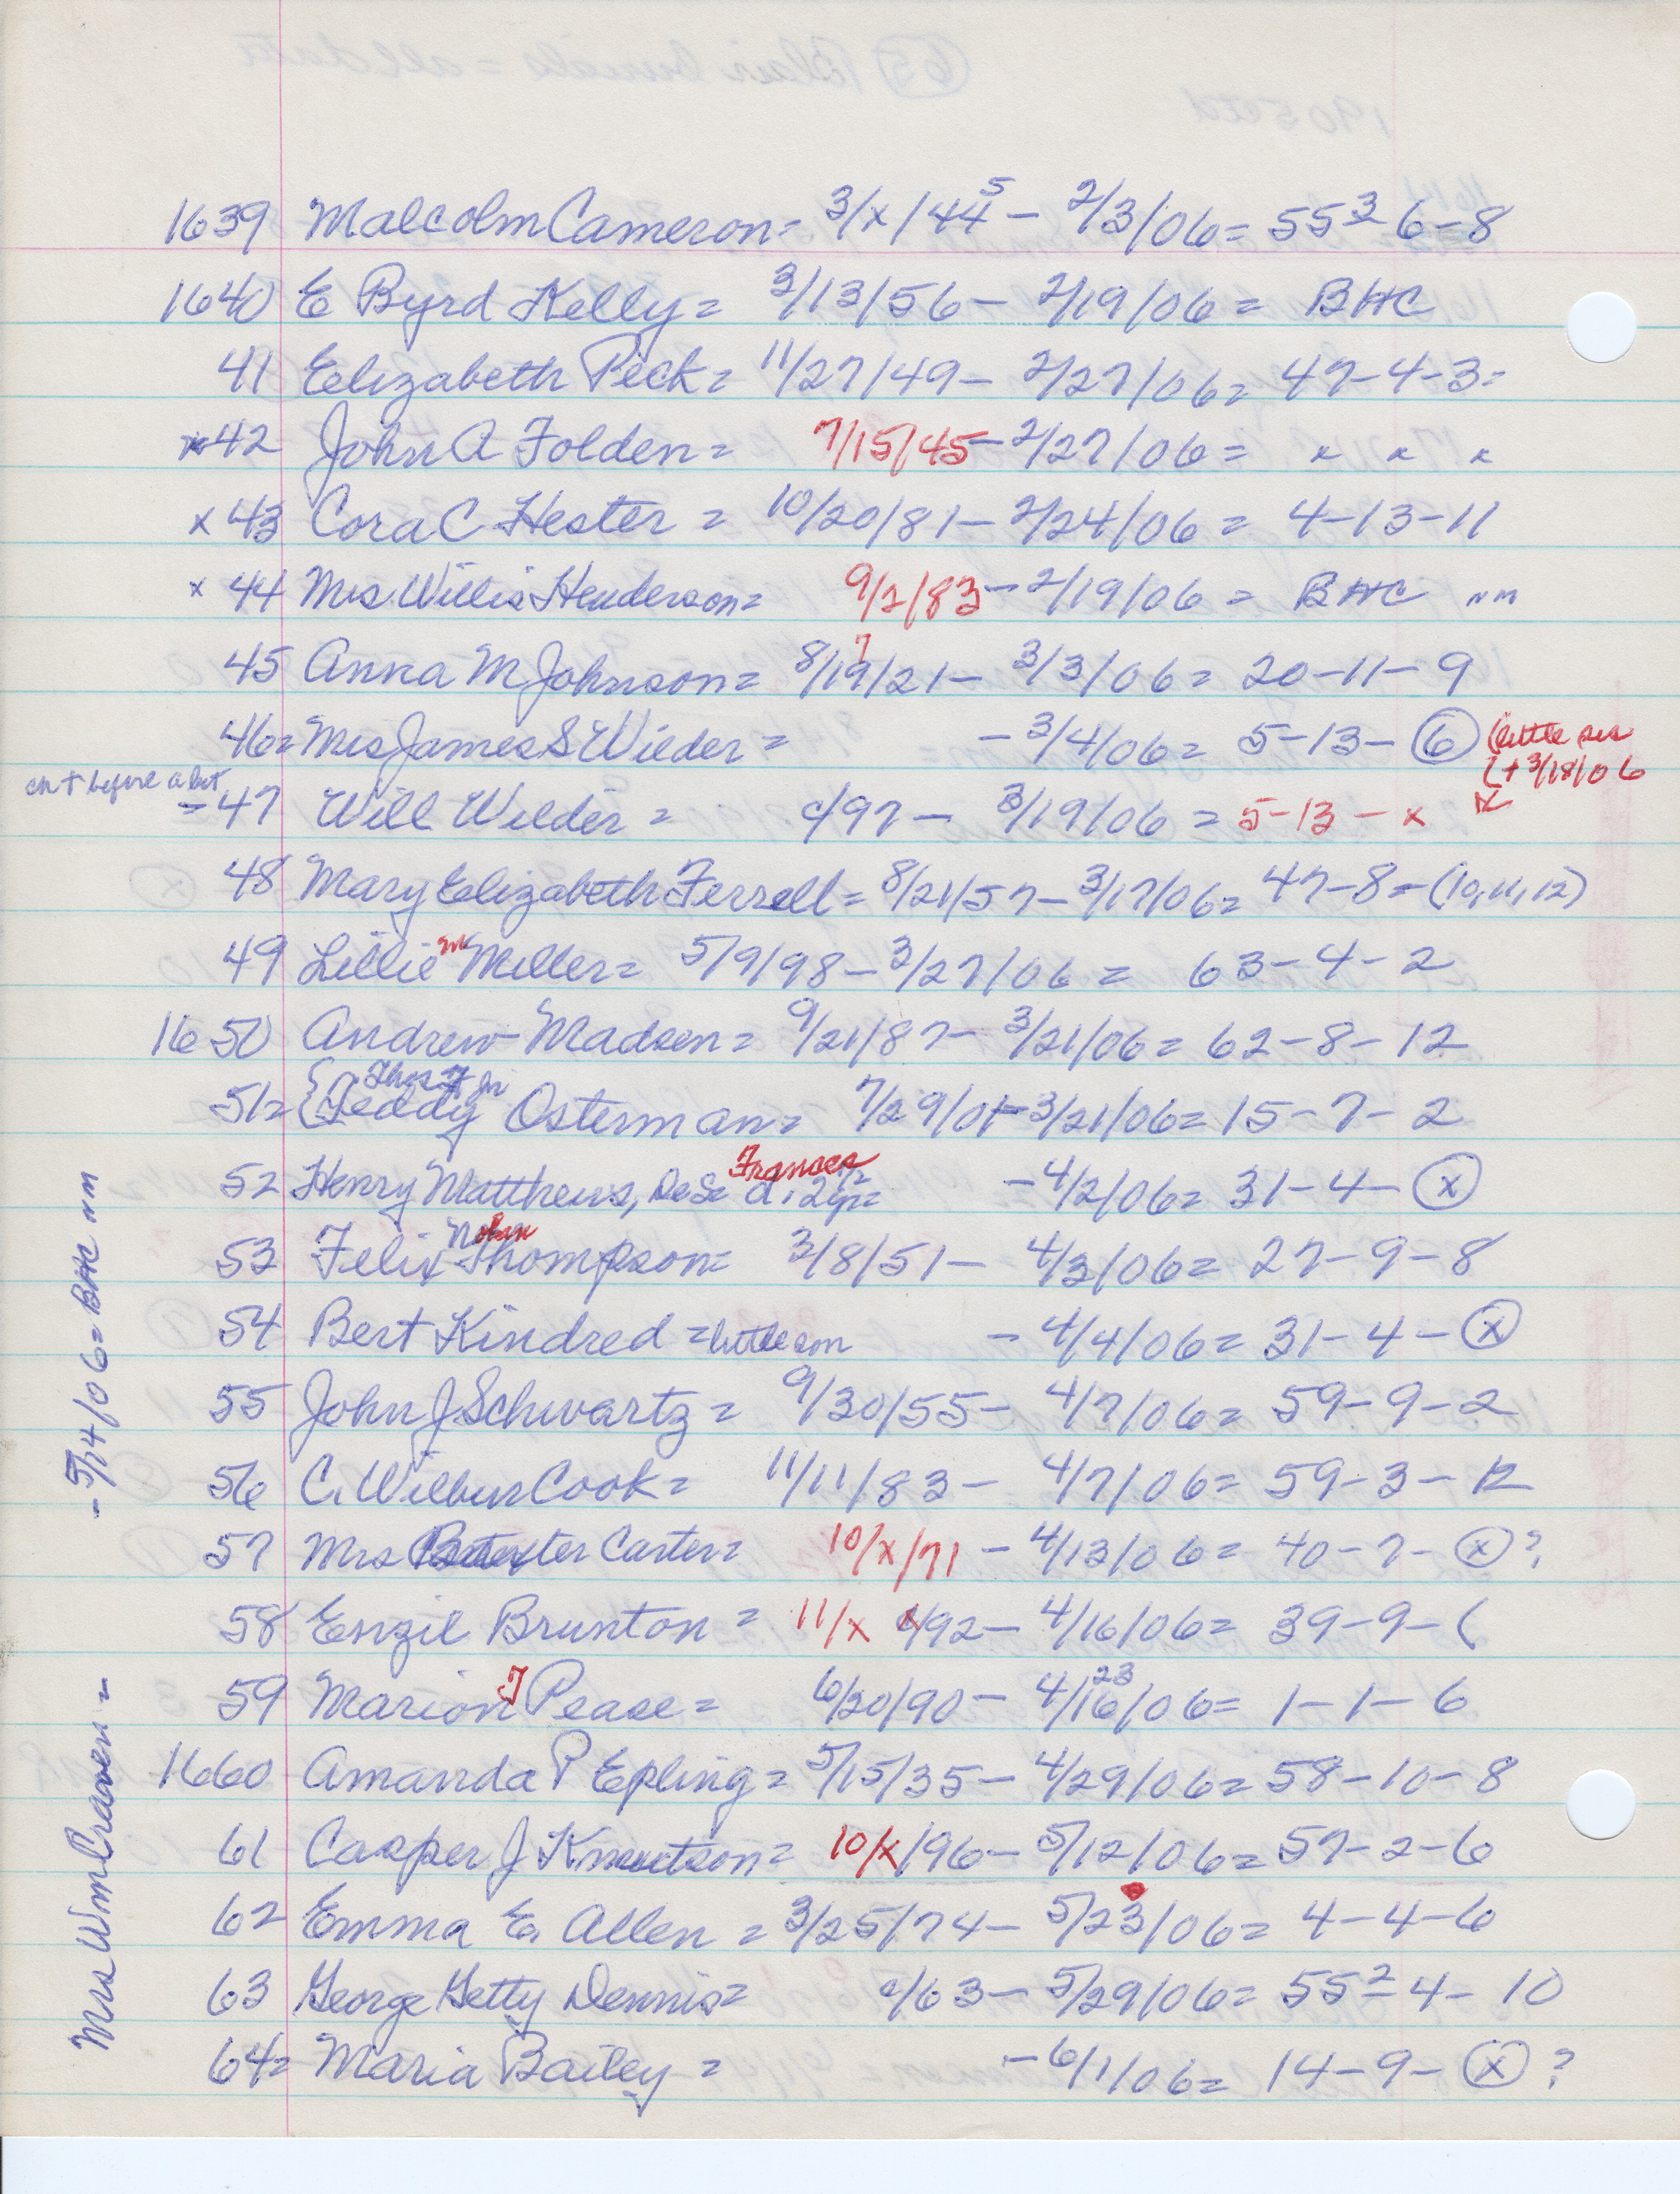 1639 Malcolm Cameron = 3/x/44 5 - 2/3/06 = 55 3 6-8
1640 E Byrd Kelly = 3/13/56 - 2/19/06 = BHC
41 Elizabeth Peck = 11/27/49 - 2/27/06 = 47-4-3 =
x 42 John A Folden = 7/15/45 - 2/27/06 = " " "
x 43 Cora C Hester = 10/20/81 - 2/24/06 = 4-13-11
x 44 Mrs. Willis Henderson = 9/2/83 - 2/19/06 = BHC nm
7
45 Anna M Johnson = 8/19/21 - 3/3/06 = 20-11-9
46 = Mrs James S Wilder = - 3/4/06 = 5-13- 6 (little
( + 3/18/06
cn + before a bet
= 47 Will Wilder = c/97 - 3/19/06 = 5-13-x
48 Mary Elizabeth Ferrell = 8/21/57 - 3/17/06 = 47-8 = (10, 11, 12)
49 Lillie M Miller = 5/9/98 - 3/27/06 = 63-4-2
1650 Andrew Madsen = 9/21/87 - 3/21/06 = 62-8-12
Thos F Jr
51 = { Teddy Osterman = 7/29/01 - 3/21/06 = 15-7-2
Frances
52 Henry Matthews, DeSc d. 2 yr = - 4/2/06 = 31-4- x
Nolan
53 Felix Thompson = 3/8/51 - 4/3/06 = 27-9-8
54 Bert Kindred = little son - 4/4/06 = 31-4- x
55 John J Schwartz = 9/30/55 - 4/7/06 = 59-9-2
56 C. Wilbur Cook = 11/11/83 - 4/7/06 = 59-3-12
57 Mrs Carter = 10/x/71 - 4/13/06 = 40-7- x ?
58 Enzil Brunton = 11/x 92 - 4/16/06 = 39-9- (
23
59 Marion J Pease = 6/20/90 - 4/16/06 = 1-1-6
1660 Amanda P Epling = 5/15/35 - 4/29/06 = 58-10-8
61 Casper J Knuutson = 10/x/96 - 5/12/06 = 57-2-6
62 Emma E. Allen = 3/25/74 - 5/23/06 = 4-4-6
63 George Getty Dennis = c/63 - 5/29/06 = 55 2 4-10
64 = Maria Bailey = - 6/1/06 = 14-9- x ?
Mrs Wm Craven = - 5/14/06 = BHC nm